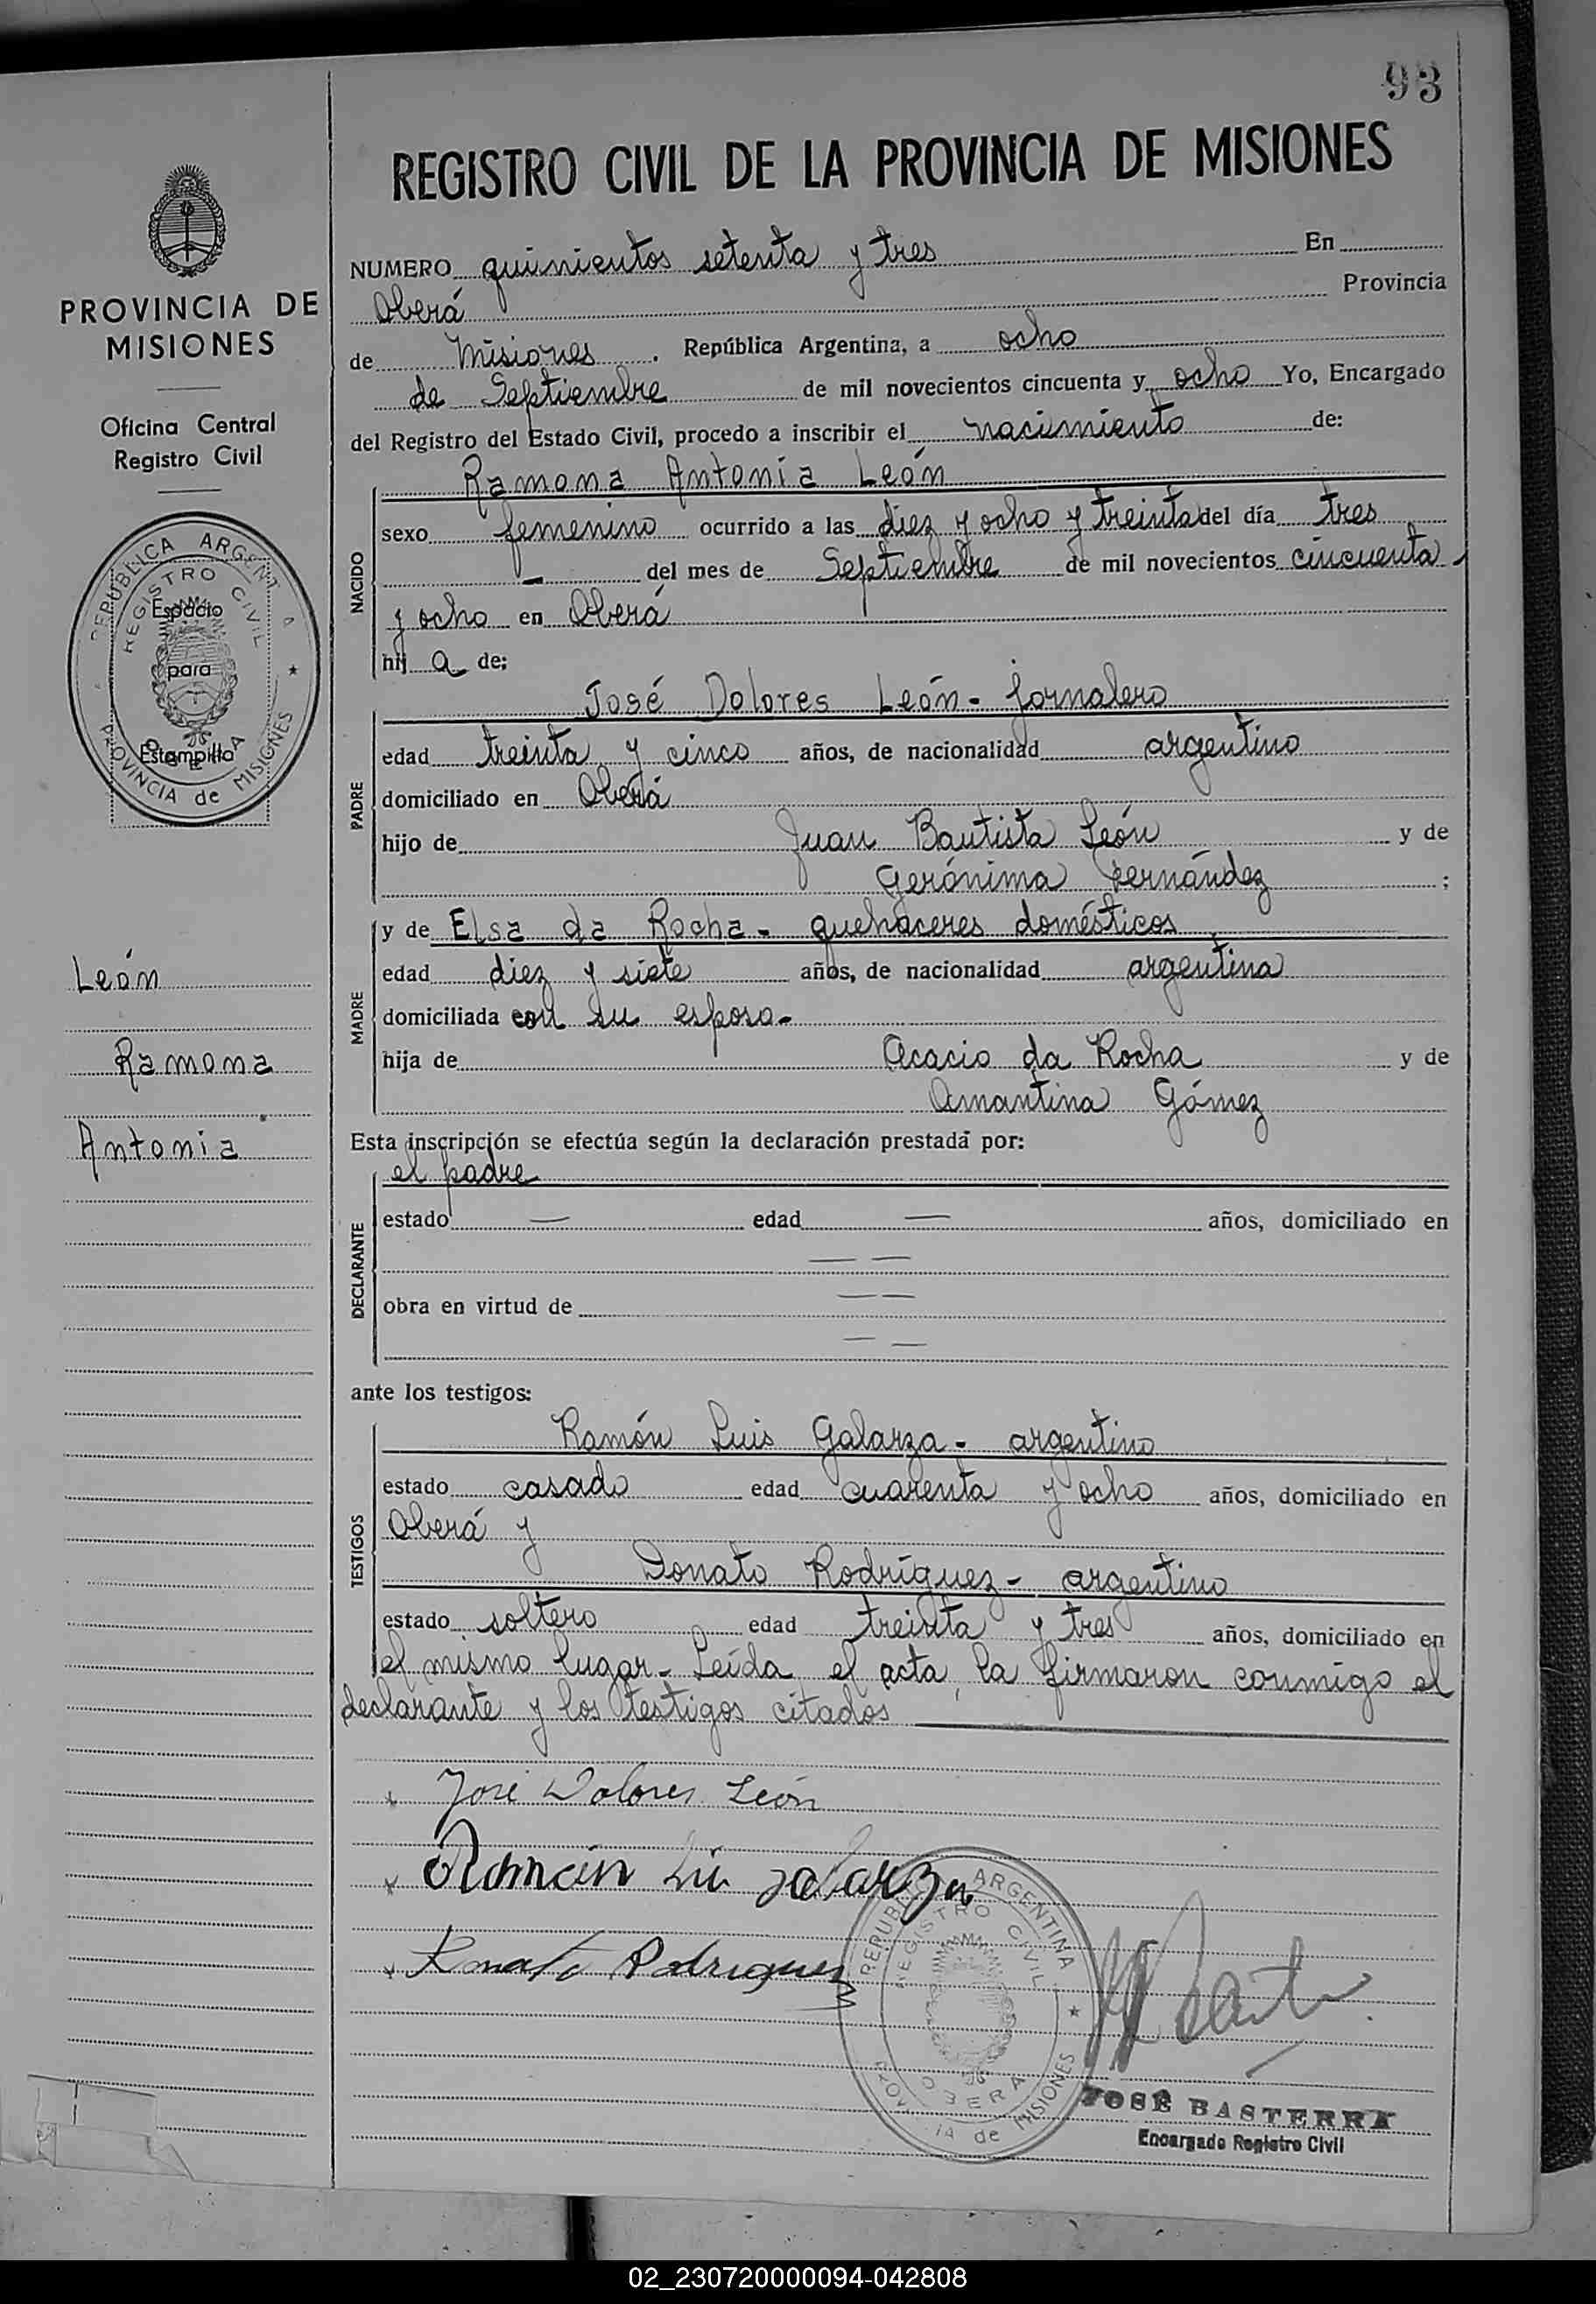 93
REGISTRO CIVIL DE LA PROVINCIA DE MISIONES
PROVINCIA DE
MISIONES
Oficina Central
Registro Civil
REPUBLICA ARGENTINA
REGISTRO CIVIL
Espacio
para
Estampilla
OBERA
PROVINCIA de MISIONES
León
Ramona
Antonia
NUMERO quinientos setenta y tres En
Oberá Provincia
de Misiones . República Argentina, a ocho
de Septiembre de mil novecientos cincuenta y ocho Yo, Encargado
del Registro del Estado Civil, procedo a inscribir el nacimiento de:
NACIDO
Ramona Antonia León
sexo femenino ocurrido a las diez y ocho y treinta del día tres
— del mes de Septiembre de mil novecientos cincuenta
y ocho en Oberá
hij a de;
PADRE
José Dolores León - jornalero
edad treinta y cinco años, de nacionalidad argentino
domiciliado en Oberá
hijo de Juan Bautista León y de
Gerónima Fernández ;
MADRE
y de Elsa da Rocha - quehaceres domésticos
edad diez y siete años, de nacionalidad argentina
domiciliada con su esposo -
hija de Acacio da Rocha y de
Amantina Gómez
Esta inscripción se efectúa según la declaración prestada por:
DECLARANTE
el padre
estado — edad — años, domiciliado en
— —
obra en virtud de — —
— —
ante los testigos:
TESTIGOS
Ramón Luis Galarza - argentino
estado casado edad cuarenta y ocho años, domiciliado en
Oberá y
Donato Rodríguez - argentino
estado soltero edad treinta y tres años, domiciliado en
el mismo lugar - Leída el acta, la firmaron conmigo el
declarante y los testigos citados
José Dolores León
Román Lui Galarza
Donato Rodriguez
REPUBLICA ARGENTINA
REGISTRO CIVIL
OBERA
PROVINCIA de MISIONES
JOSÉ BASTERRA
Encargado Registro Civil
02_230720000094-042808